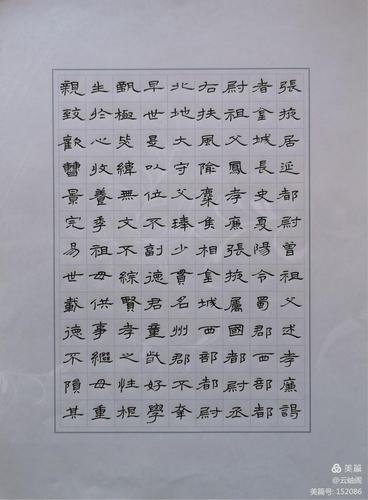 張掖居延都尉曾祖父述孝廉謁
者金城長史夏陽令蜀郡西部都
尉祖父鳳孝廉張掖屬國都尉丞
右扶風隃麋侯相金城西部都尉
北地大守父琫少貫名州郡不幸
早世是以位不副德君童齔好學
甄極毖緯無文不綜賢孝之性根
生於心收養季祖母供事繼母重
親致歡曹景完易世載德不隕其
美篇
@云岫阁
美篇号: 152086